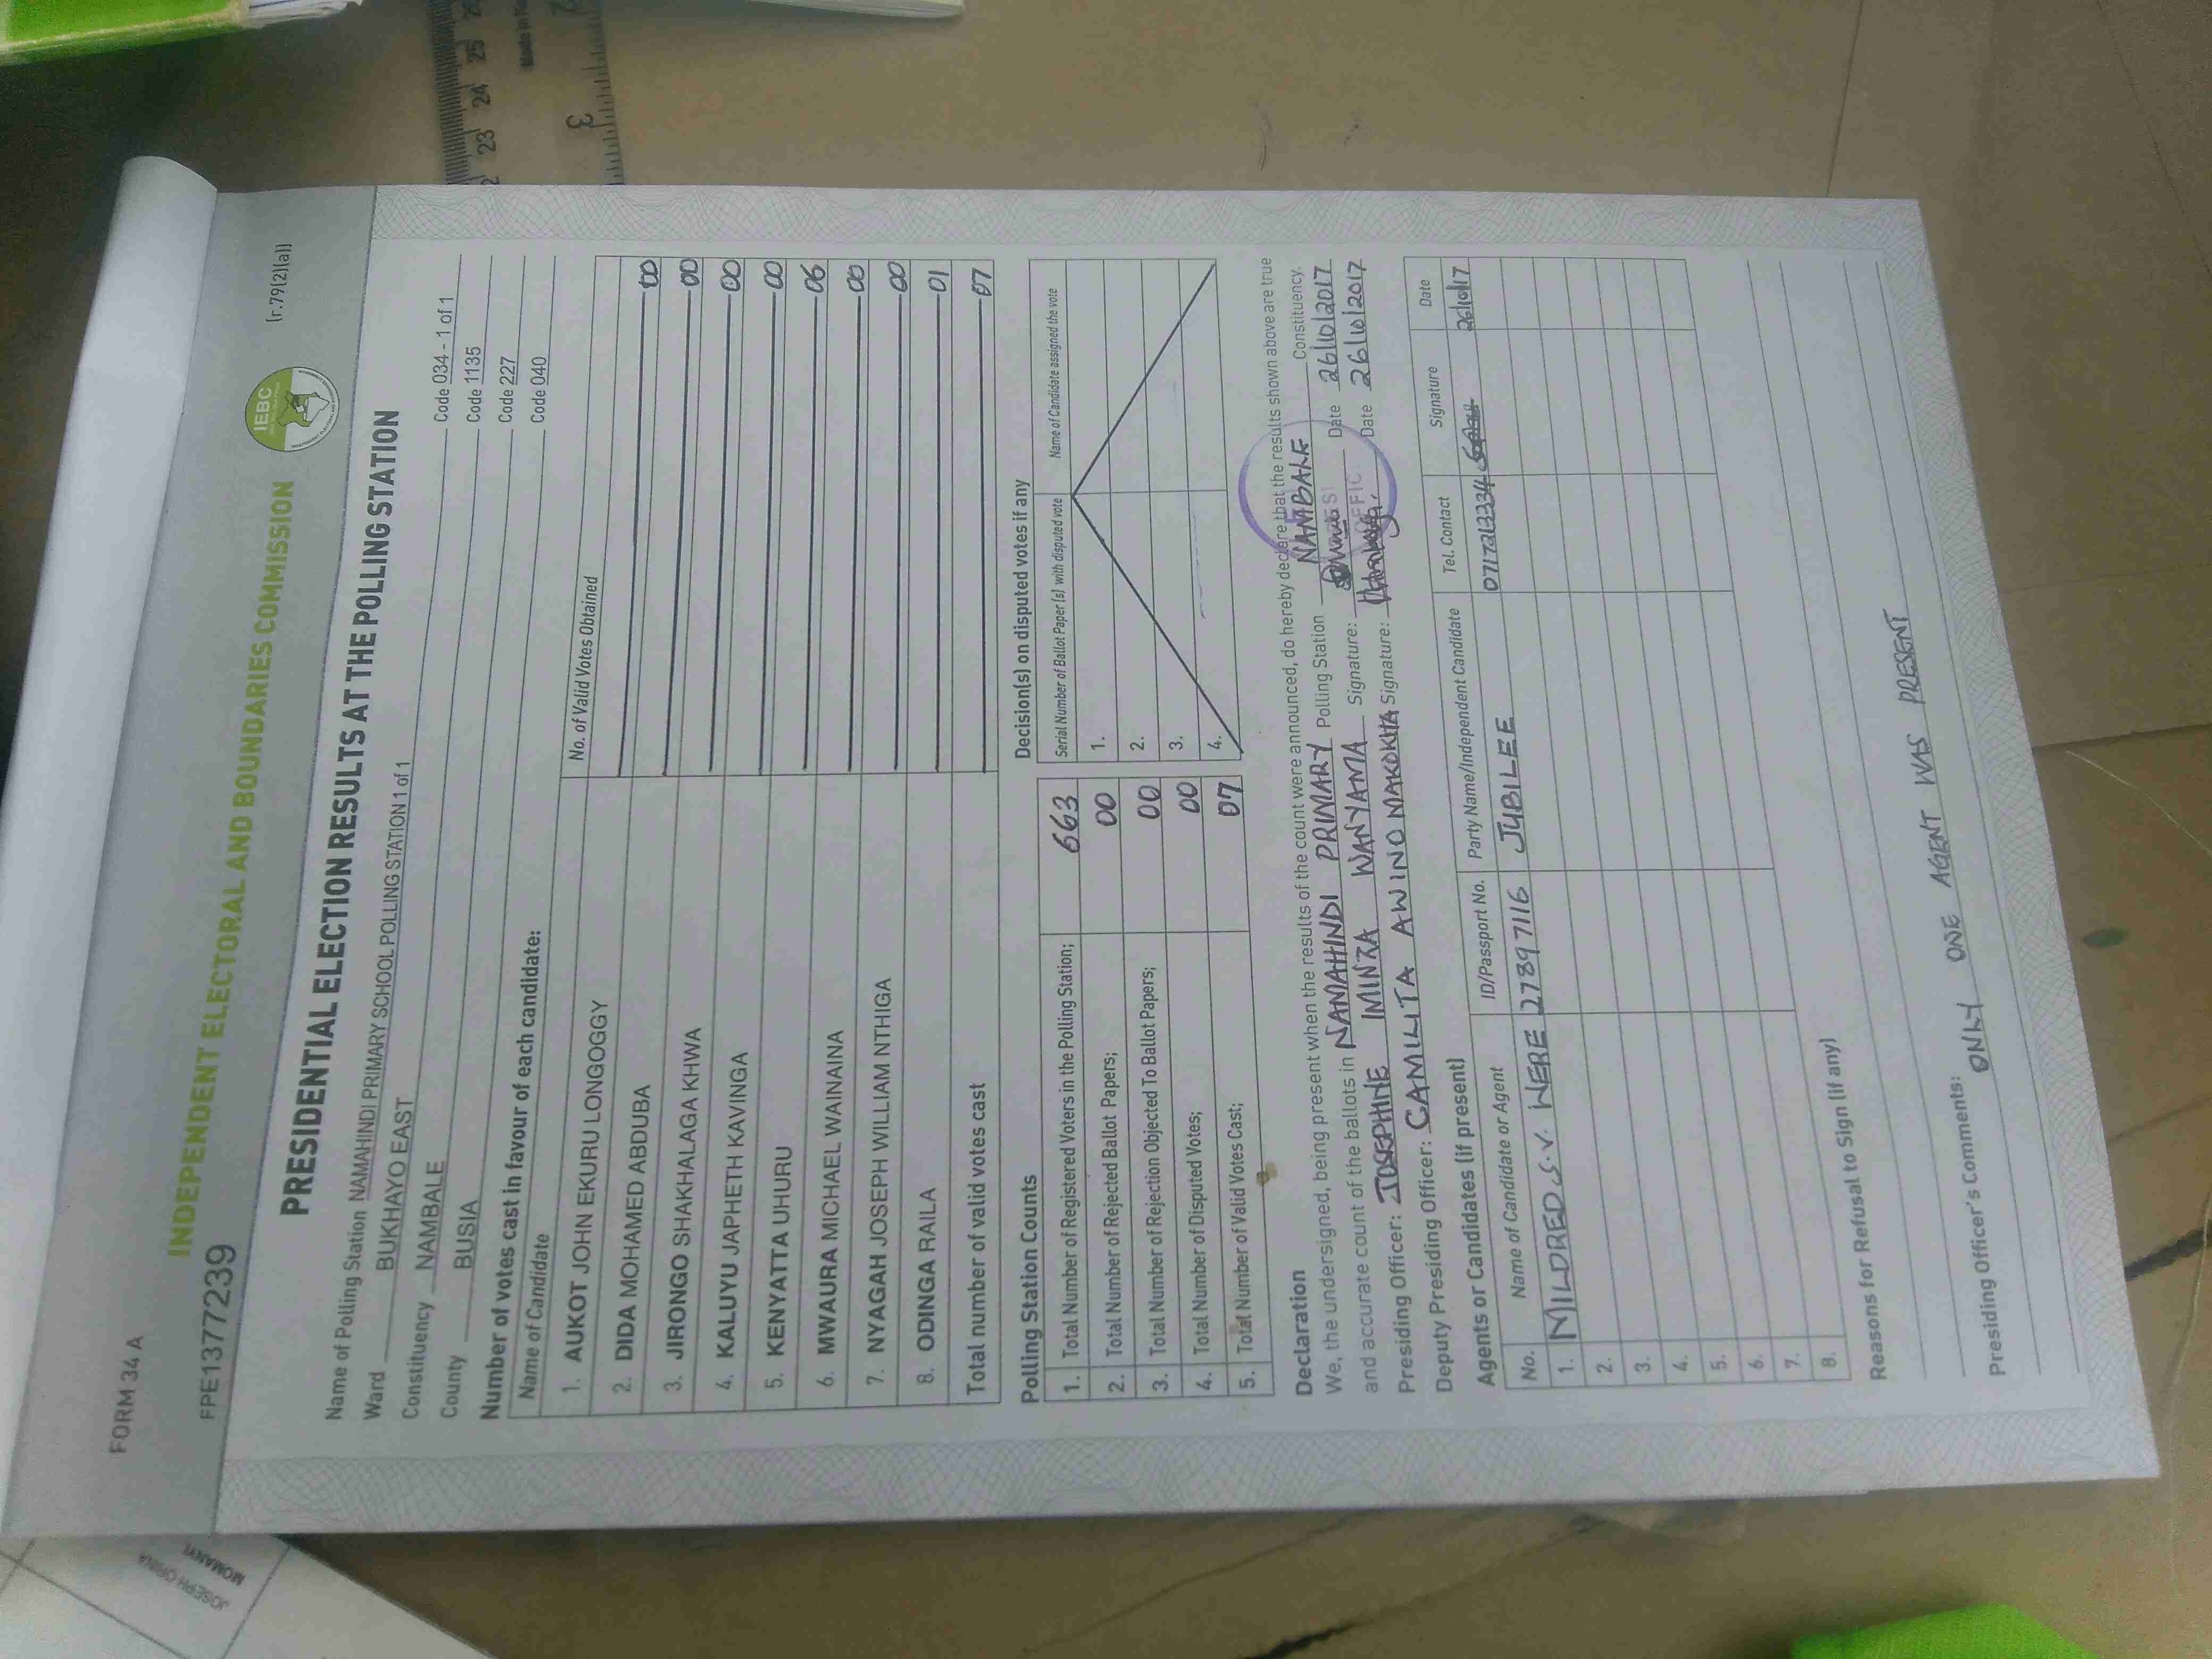 FORM 34 A
FPE1377239
INDEPENDENT ELECTORAL AND BOUNDARIES COMMISSION
IEBC
(r.79(2)(a))
PRESIDENTIAL ELECTION RESULTS AT THE POLLING STATION
Name of Polling Station NAMAHINDI PRIMARY SCHOOL POLLING STATION 1 of 1 Code 034 - 1 of 1
Ward BUKHAYO EAST Code 1135
Constituency NAMBALE Code 227
County BUSIA Code 040
Number of votes cast in favour of each candidate:
Name of Candidate No. of Valid Votes Obtained
1. AUKOT JOHN EKURU LONGOGGY 00
2. DIDA MOHAMED ABDUBA 00
3. JIRONGO SHAKHALAGA KHWA 00
4. KALUYU JAPHETH KAVINGA 00
5. KENYATTA UHURU 06
6. MWAURA MICHAEL WAINAINA 00
7. NYAGAH JOSEPH WILLIAM NTHIGA 00
8. ODINGA RAILA 01
Total number of valid votes cast 07
Polling Station Counts
1. Total Number of Registered Voters in the Polling Station; 663
2. Total Number of Rejected Ballot Papers; 00
3. Total Number of Rejection Objected To Ballot Papers; 00
4. Total Number of Disputed Votes; 00
5. Total Number of Valid Votes Cast; 07
Decision(s) on disputed votes if any
Serial Number of Ballot Paper (s) with disputed vote Name of Candidate assigned the vote
1.
2.
3.
4.
Declaration
We, the undersigned, being present when the results of the count were announced, do hereby declare that the results shown above are true
and accurate count of the ballots in NAMAHINDI PRIMARY Polling Station NAMBALE Constituency.
Presiding Officer: JOSEPHINE IMINZA WANYAMA Signature: Date 26/10/2017
Deputy Presiding Officer: CAMILITA AWINO MAKOKHA Signature: Date 26/10/2017
Agents or Candidates (if present)
No. Name of Candidate or Agent ID/Passport No. Party Name/Independent Candidate Tel. Contact Signature Date
1. MILDRED S.V. WERE 27897116 JUBILEE 0717213334 26/10/17
2.
3.
4.
5.
6.
7.
8.
Reasons for Refusal to Sign (if any)
Presiding Officer's Comments:
ONLY ONE AGENT WAS PRESENT
23 24 25
3
JOSEPH
MOMANYI